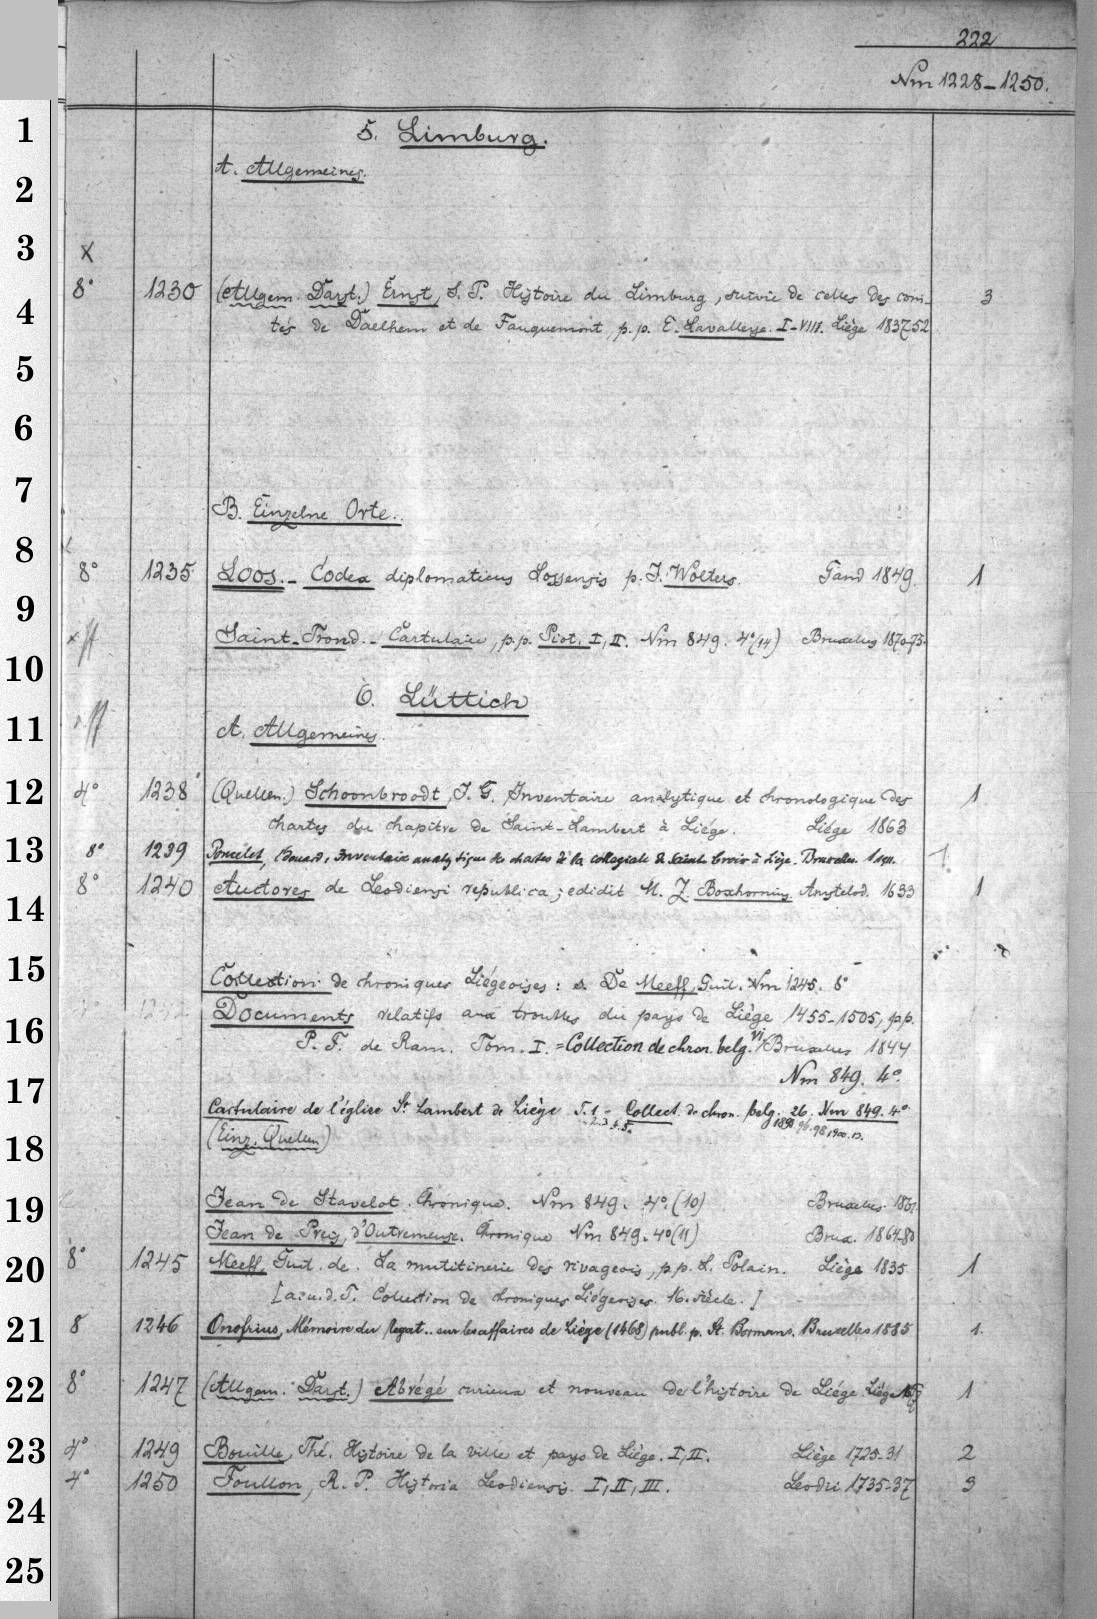 222
Nm 1228-1250.
5. Limburg.
A. Allgemeines.
x
8° 1230 (Allgem. Darst.) Ernst, S. P. Histoire du Limburg, suivie de celles des com-
tés de Daelhem et de Fauquemont, p. p. E. Lavalleye. I-VIII. Liège 1837-52 3
B. Einzelne Orte.
8° 1235 Loos. - Codex diplomaticus Lossensis p. J. Wolters. Gand 1849. 1
Saint-Trond. - Cartulaire, p. p. Piot. I, II. Nm 849. 4° (14) Bruxelles 1870-75.
6. Lüttich
A. Allgemeines.
4° 1238 (Quellen.) Schoonbroodt, J. G. Inventaire analytique et chronologique des 1
chartes du chapitre de Saint-Lambert à Liége. Liége 1863
8° 1239 Poncelet, Edouard, Inventaire analytique de chartes de la collégiale de Sainte Croix à Liège. Bruxelles. 1911. 1
8° 1240 Auctores de Leodiensi republica; edidit M. Z. Boxhornius. Amstelod. 1633 1
Collection de chroniques Liégeoises: s. De Meeff, Guil. Nm 1245. 8°
1242 Documents relatifs aux troubles du pays de Liège 1455-1505, p.p.
P. F. de Ram. Tom. I. = Collection de chron. belg. VI Bruxelles 1844
Nm 849. 4°.
Cartulaire de l'église St. Lambert de Liège T. 1 - Collect. de chron. belg. 26. Nm 849. 4°
2. 3. 4. 5. 1893 96. 98. 1900. 13.
(Einz. Quellen)
Jean de Stavelot. Chronique. Nm 849. 4°. (10) Bruxelles. 1861.
Jean de Preis, d'Outremeuse. Chronique Nm 849. 4° (11) Brux. 1864-80
8° 1245 Meeff, Guil. de. La mutitinerie des rivageois, p. p. L. Polain. Liége 1835 1
[a. u. d. T. Collection de chroniques Liégeoises. 16. siècle.]
8 1246 Onofrius, Mémoire du legat.. sur les affaires de Liège (1468) publ. p. St. Bormans. Bruxelles 1885 1.
8° 1247 (Allgem. Darst.) Abrégé curieux et nouveau de l'histoire de Liége Liége 1
4° 1249 Bouille, Thé. Histoire de la ville et pays de Liège. I, II. Liège 1725-31 2
4° 1250 Foullon, R. P. Historia Leodiensis. I, II, III. Leodii 1735-37 3
1
2
3
4
5
6
7
8
9
10
11
12
13
14
15
16
17
18
19
20
21
22
23
24
25